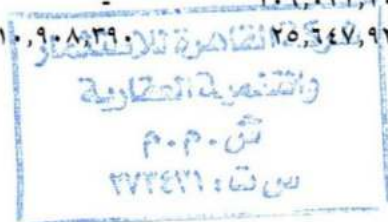 ٢٥,٦٤٧,٩٢
شركة القاهرة للاستثمار
والتنمية العقارية
ش.م.م
س ت : ٢٧٣٤٢١